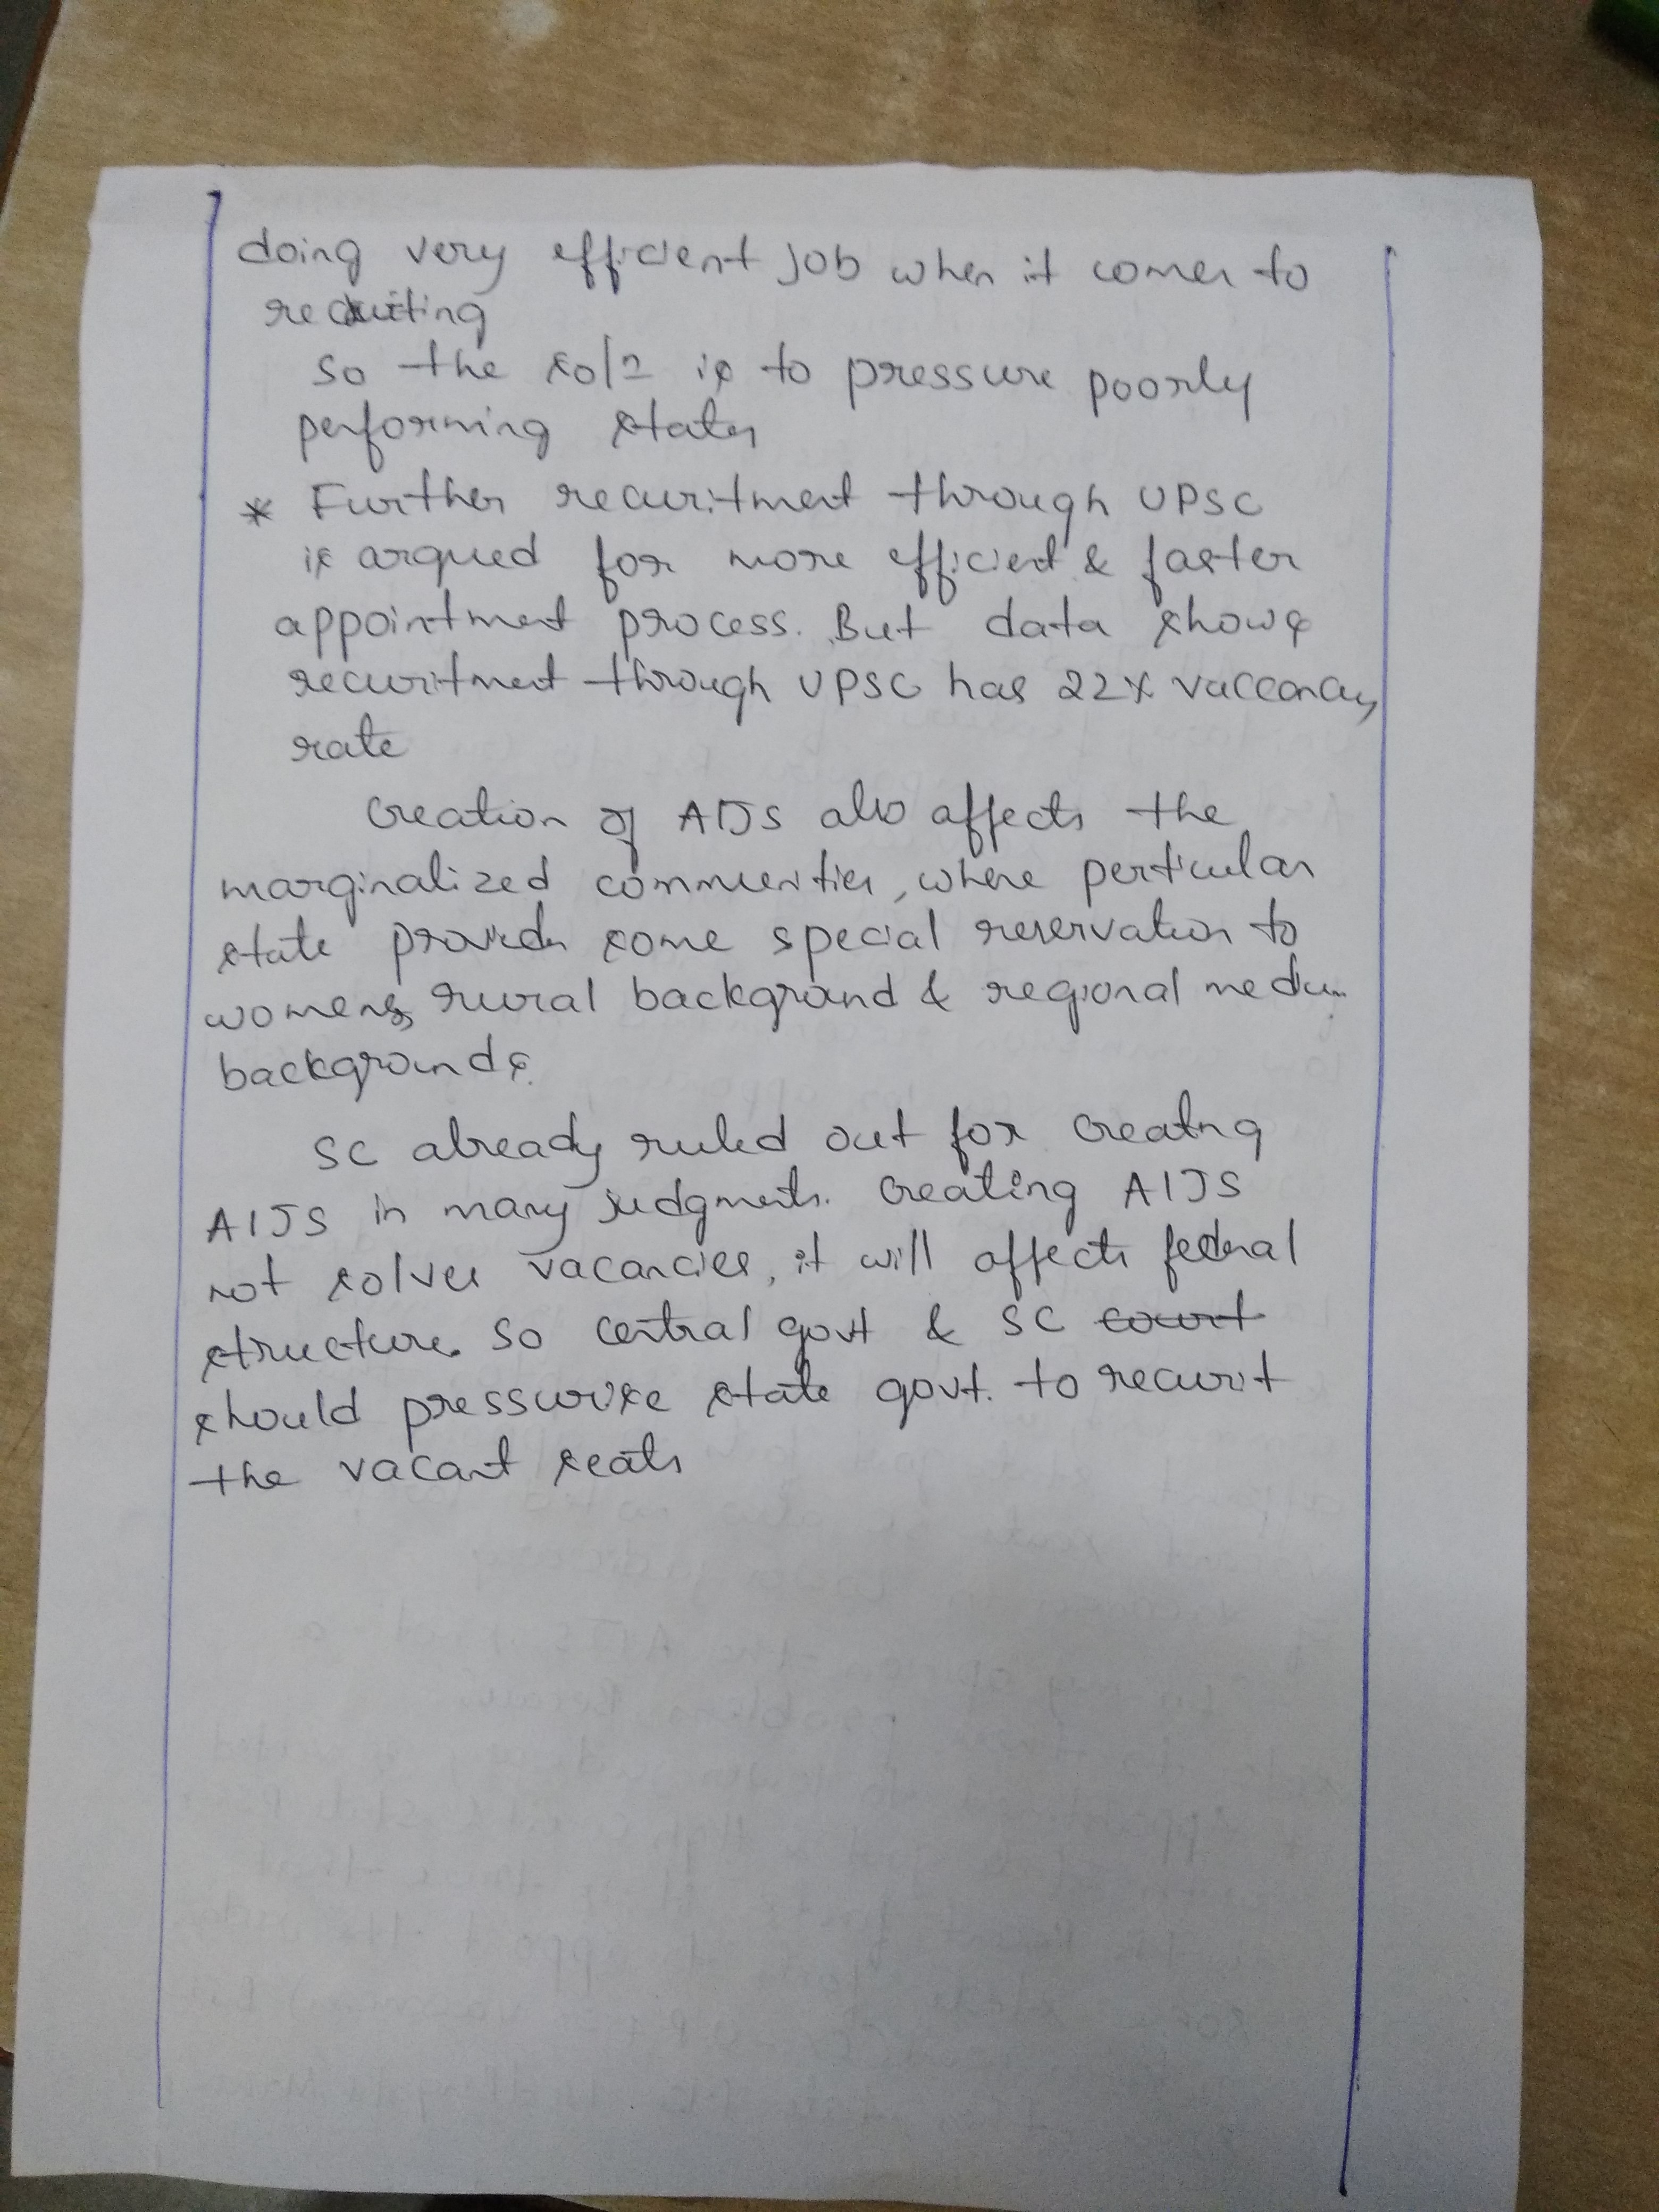 doing very efficient job when it comes to
recruiting
so the sol? is to pressure poorly
performing states
* Further recuritment through UPSC
is argued for more efficient & faster
appointment process. But data shows
recuritment through UPSC has 22% vaccancy
rate
Creation of AIJS also affects the
marginalized communities, where perticular
state provides some special reservation to
womens, rural background & regional medium
backgrounds.
SC already ruled out for creating
AIJS in many judgments. Creating AIJS
not solves vacancies, it will affects federal
structure. So central govt & SC court
should pressurise state govt. to recurit
the vacant seats